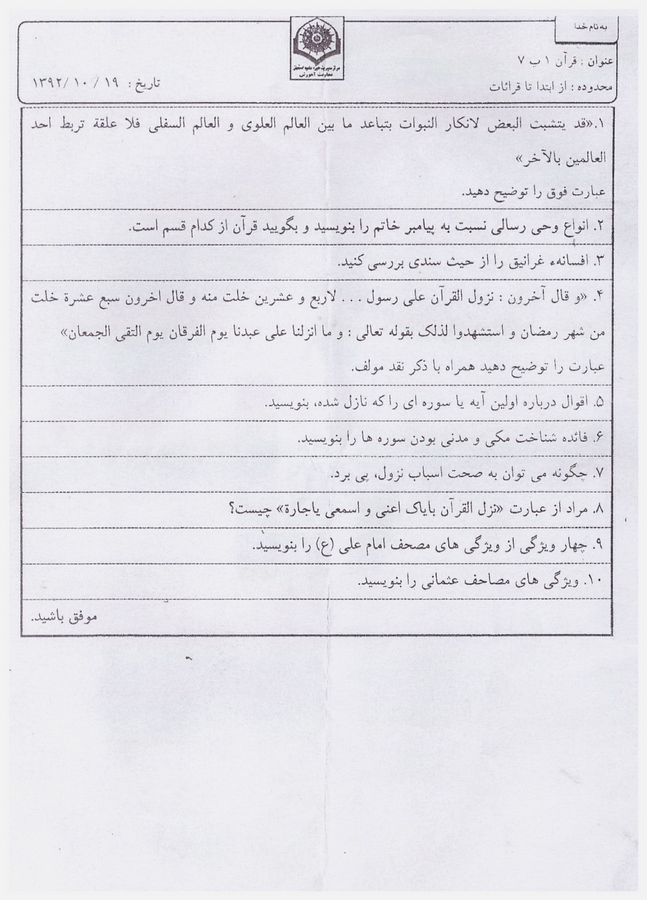 به نام خدا
عنوان : قرآن ۱ ب ۷
محدوده : از ابتدا تا قرائات
تاریخ : ۱۹ / ۱۰ / ۱۳۹۲
۱.«قد یتشبت البعض لانکار النبوات بتباعد ما بین العالم العلوی و العالم السفلی فلا علقة تربط احد
العالمین بالآخر»
عبارت فوق را توضیح دهید.
۲. انواع وحی رسالی نسبت به پیامبر خاتم را بنویسید و بگویید قرآن از کدام قسم است.
۳. افسانهء غرانیق را از حیث سندی بررسی کنید.
۴. «و قال آخرون : نزول القرآن علی رسول . . . لاربع و عشرین خلت منه و قال اخرون سبع عشرة خلت
من شهر رمضان و استشهدوا لذلک بقوله تعالی : و ما انزلنا علی عبدنا یوم الفرقان یوم التقی الجمعان»
عبارت را توضیح دهید همراه با ذکر نقد مولف.
۵. اقوال درباره اولین آیه یا سوره ای را که نازل شده، بنویسید.
۶. فائده شناخت مکی و مدنی بودن سوره ها را بنویسید.
۷. چگونه می توان به صحت اسباب نزول، پی برد.
۸. مراد از عبارت «نزل القرآن بایاک اعنی و اسمعی یاجارة» چیست؟
۹. چهار ویژگی از ویژگی های مصحف امام علی (ع) را بنویسید.
۱۰. ویژگی های مصاحف عثمانی را بنویسید.
موفق باشید.